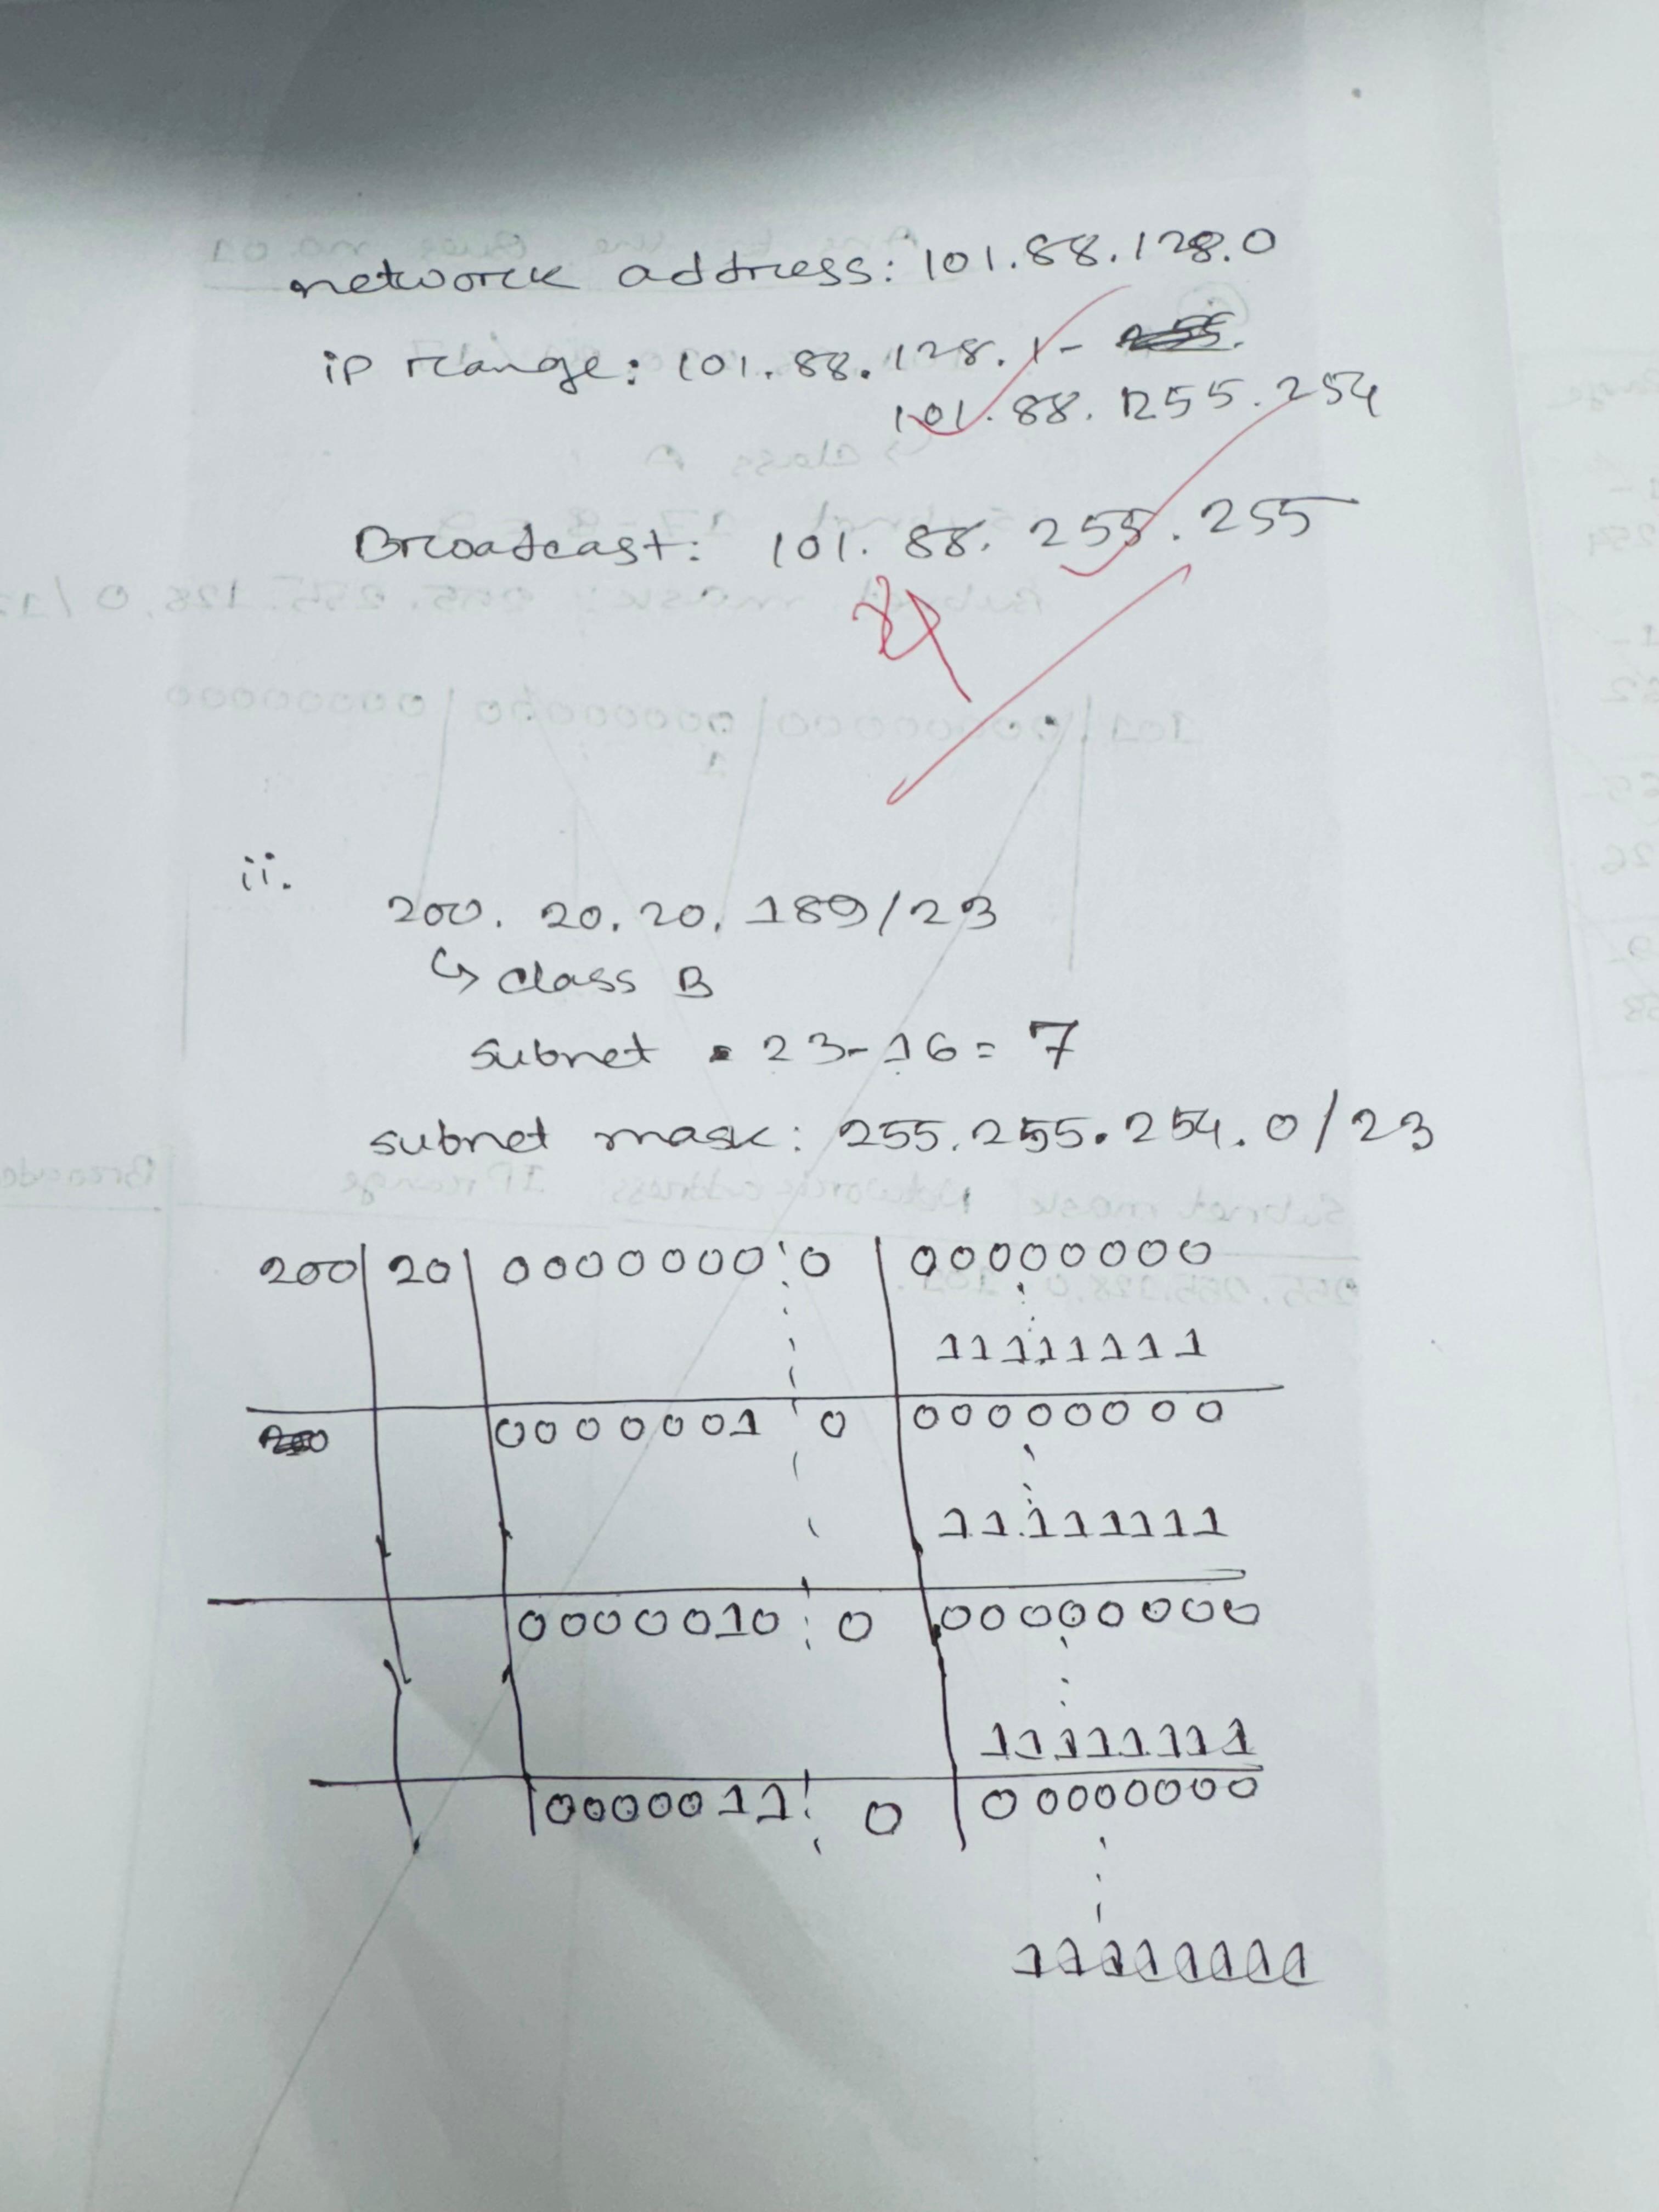 network address: 101.88.128.0
ip range: 101.88.128.1-
101.88.255.254
Broadcast: 101.88.255.255
ii.
200.20.20.189/23
↳ class B
subnet = 23-16= 7
subnet mask: 255.255.254.0/23
200 20 0000000 0 00000000
11111111
0000001 0 00000000
11111111
0000010 0 00000000
11111111
0000011 0 00000000
11111111